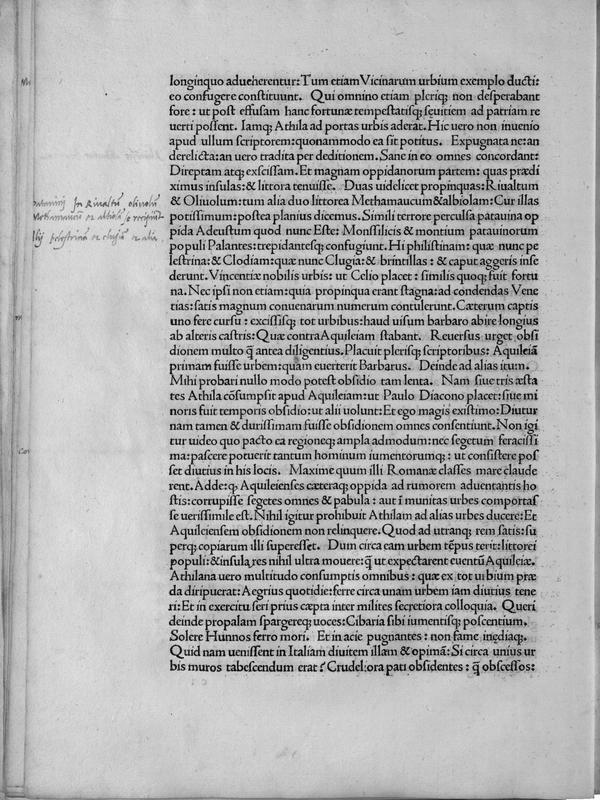 longinquo adueherentur: Tum etiam Vicinarum urbium exemplo ducti:
eo confugere constituunt. Qui omnino etiam pleriq; non desperabant
fore: ut post effusam hanc fortunæ tempestatisq; sęuitiem ad patriam re
uerti possent. Iamq; Athila ad portas urbis aderat. Hic uero non inuenio
apud ullum scriptorem: quonammodo ea sit potitus. Expugnata ne: an
derelicta: an uero tradita per deditionem. Sane in eo omnes concordant:
Direptam atq; exscissam. Et magnam oppidanorum partem: quas prædi
ximus insulas: & littora tenuisse. Duas uidelicet propinquas: Riualtum
& Oliuolum: tum alia duo littorea Methamaucum & albiolam: Cur illas
potissimum: postea planius dicemus. Simili terrore perculsa patauina op
pida Adeustum quod nunc Este: Monssilicis & montium patauinorum
populi Palantes: trepidantesq; confugiunt. Hi philistinam: quæ nunc pe
lestrina: & Clodiam: quæ nunc Clugia: & brintillas: & caput aggeris inse
derunt. Vincentiæ nobilis urbis: ut Celio placet: similis quoq; fuit fortu
na. Nec ipsi non etiam: quia propinqua erant stagna: ad condendas Vene
tias: satis magnum conuenarum numerum contulerunt. Cæterum captis
uno fere cursu: excissisq; tot urbibus: haud uisum barbaro abire longius
ab alteris castris: Quæ contra Aquileiam stabant. Reuersus urget obsi
dionem multo q̃ antea diligentius. Placuit plerisq; scriptoribus: Aquileiã
primam fuisse urbem: quam euerterit Barbarus. Deinde ad alias itum.
Mihi probari nullo modo potest obsidio tam lenta. Nam siue tris æsta
tes Athila cõsumpsit apud Aquileiam: ut Paulo Diacono placet: siue mi
noris fuit temporis obsidio: ut alii uolunt: Et ego magis existimo: Diutur
nam tamen & durissimam fuisse obsidionem omnes consentiunt. Non igi
tur uideo quo pacto ea regioneq; ampla admodum: nec segetum feracissi
ma: pascere potuerit tantum hominum iumentorumq;: ut consistere pos
set diutius in his locis. Maxime quum illi Romanæ classes mare claude
rent. Adde: q. Aquileienses cæteraq; oppida ad rumorem aduentantis ho
stis: corrupisse segetes omnes & pabula: aut ĩ munitas urbes comportas
se uerissimile est. Nihil igitur prohibuit Athilam ad alias urbes ducere: Et
Aquileiensem obsidionem non relinquere. Quod ad utranq; rem satis: su
perq; copiarum illi superesset. Dum circa eam urbem tẽpus terit: littorei
populi: & insulares nihil ultra mouere: q̃ ut expectarent euentũ Aquileiæ.
Athilana uero multitudo consumptis omnibus: quæ ex tot urbium præ
da diripuerat: Aegrius quotidie: ferre circa unam urbem iam diutius tene
ri: Et in exercitu seri prius cæpta inter milites secretiora colloquia. Queri
deinde propalam spargereq; uoces: Cibaria sibi iumentisq; poscentium.
Solere Hunnos ferro mori. Et in acie pugnantes: non fame inędiaq.
Quid nam uenissent in Italiam diuitem illam & opimã: Si circa unius ur
bis muros tabescendum erat? Crudeliora pati obsidentes: q̃ obsessos: